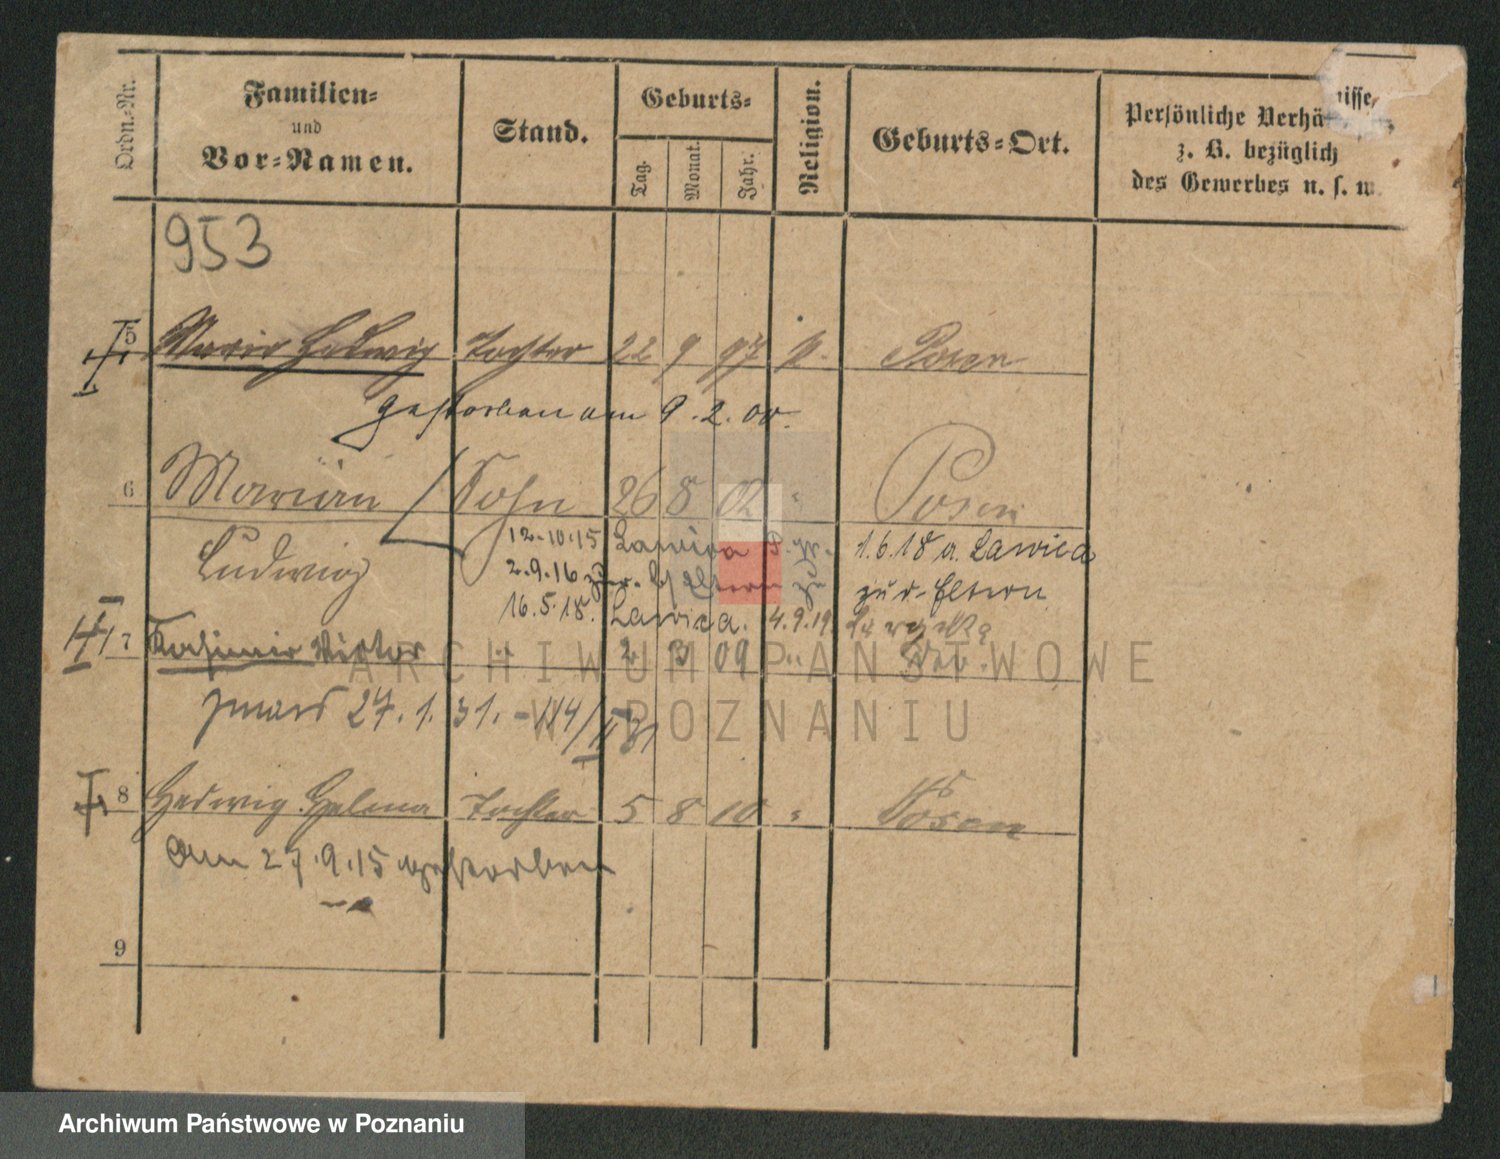 Ordn.-Nr.
Familien-
und
Vor-Namen.
Stand.
Geburts-
Tag.
Monat.
Jahr.
Religion.
Geburts-Ort.
Persönliche Verhä nisse,
z. B. bezüglich
des Gewerbes u. s. w.
953
5 Marie Hedwig Tochter 22 9 97 k. Posen
gestorben am 9.2.00.
6 Marian Sohn 26 8 02 " Posen
Ludwig
12.10.15 Lawica 1.6.18 a. Lawica
2.9.16 Eltern zur. Eltern
16.5.18. Lawica. 4.9.19.
7 Kasimir Victor " 2 3 09 "
zmarł 27.1.31.
8 Hedwig Helena Tochter 5 8 10 " Posen
Am 27.9.15 gestorben
9
ARCHIWUM PAŃSTWOWE
W POZNANIU
Archiwum Państwowe w Poznaniu